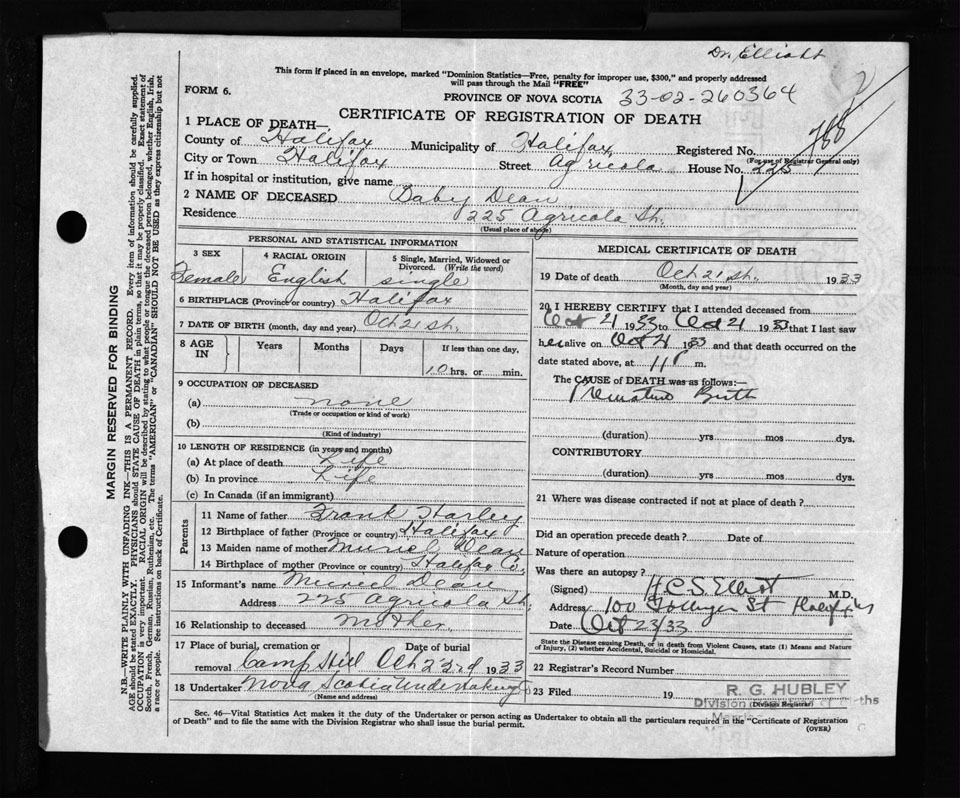 Dr. Elliott
This form if placed in an envelope, marked "Dominion Statistics—Free, penalty for improper use, $300," and properly addressed
will pass through the Mail "FREE"
FORM 6.
PROVINCE OF NOVA SCOTIA 33-02-260364
CERTIFICATE OF REGISTRATION OF DEATH
1 PLACE OF DEATH—
County of Halifax Municipality of Halifax Registered No. 788
(For use of Registrar General only)
City or Town Halifax Street Agricola House No. 225
If in hospital or institution, give name
2 NAME OF DECEASED Baby Dean
Residence 225 Agricola St.
(Usual place of abode)
PERSONAL AND STATISTICAL INFORMATION
3 SEX 4 RACIAL ORIGIN 5 Single, Married, Widowed or
Divorced. (Write the word)
Female English single
6 BIRTHPLACE (Province or country) Halifax
7 DATE OF BIRTH (month, day and year) Oct 21 st.
8 AGE IN Years Months Days If less than one day,
10 hrs. or min.
9 OCCUPATION OF DECEASED
(a) none
(Trade or occupation or kind of work)
(b)
(Kind of industry)
10 LENGTH OF RESIDENCE (in years and months)
(a) At place of death Life
(b) In province Life
(c) In Canada (if an immigrant)
Parents
11 Name of father Frank Harley
12 Birthplace of father (Province or country) Halifax
13 Maiden name of mother Muriel Dean
14 Birthplace of mother (Province or country) Halifax Co.
15 Informant's name Muriel Dean
Address 225 Agricola St.
16 Relationship to deceased Mother
17 Place of burial, cremation or Date of burial
removal Camp Hill Oct 23rd 1933
18 Undertaker Nova Scotia Undertaking Co
(Name and address)
MEDICAL CERTIFICATE OF DEATH
19 Date of death Oct 21 st. 1933
(Month, day and year)
20 I HEREBY CERTIFY that I attended deceased from
Oct 21 1933 to Oct 21 1933 that I last saw
her alive on Oct 21 1933 and that death occurred on the
date stated above, at 11 P m.
The CAUSE of DEATH was as follows:—
Premature Birth
(duration) yrs mos dys.
CONTRIBUTORY
(duration) yrs mos dys.
21 Where was disease contracted if not at place of death?
Did an operation precede death? Date of
Nature of operation
Was there an autopsy?
(Signed) H.C.S. Elliott M.D.
Address 100 St Halifax NS
Date Oct 23/33
State the Disease causing Death, or in death from Violent Causes, state (1) Means and Nature
of Injury, (2) whether Accidental, Suicidal or Homicidal.
22 Registrar's Record Number
23 Filed 19 R. G. HUBLEY
(Division Registrar)
Sec. 46—Vital Statistics Act makes it the duty of the Undertaker or person acting as Undertaker to obtain all the particulars required in the "Certificate of Registration
of Death" and to file the same with the Division Registrar who shall issue the burial permit.
(OVER)
MARGIN RESERVED FOR BINDING
N.B.—WRITE PLAINLY WITH UNFADING INK—THIS IS A PERMANENT RECORD. Every item of information should be carefully supplied.
AGE should be stated EXACTLY. PHYSICIANS should STATE CAUSE OF DEATH in plain terms, so that it may be properly classified. Exact statement of
OCCUPATION is very important. RACIAL ORIGIN will be described by stating to what people or tongue the deceased person belonged, whether English, Irish,
Scotch, French, German, Russian, Ruthenian, etc. The terms "AMERICAN" or "CANADIAN" SHOULD NOT BE USED as they express citizenship but not
a race or people. See instructions on back of Certificate.